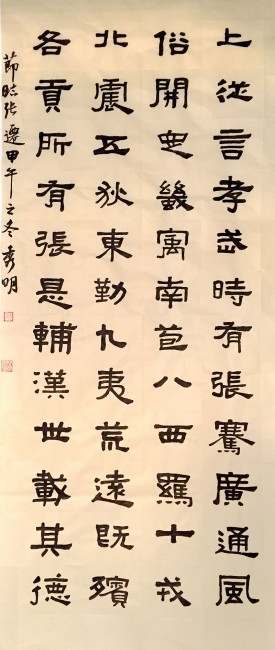 上從言孝武時有張騫廣通風
俗開定畿寓南苞八西羈十戎
北震五狄東勤九夷荒遠既殯
各貢所有張是輔漢世載其德
節臨張遷甲午之冬秀明